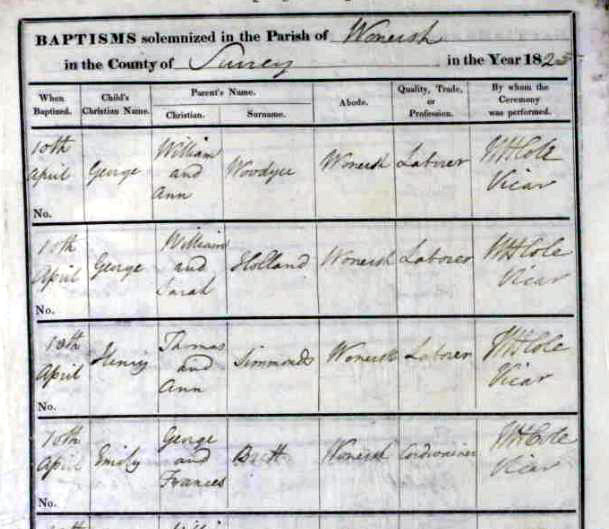 BAPTISMS solemnized in the Parish of Wonersh
in the County of Surrey in the Year 1825
When Baptized. Child's Christian Name. Parent's Name. Christian. Surname. Abode. Quality, Trade, or Profession. By whom the Ceremony was performed.
10th April George William and Ann Woodyer Wonersh Laborer WHCole Vicar
No.
10th April George William and Sarah Holland Wonersh Laborer WHCole Vicar
No.
10th April Henry Thomas and Ann Simmonds Wonersh Laborer WHCole Vicar
No.
10th April Emily George and Frances Brett Wonersh Cordwainer WHCole Vicar
No.